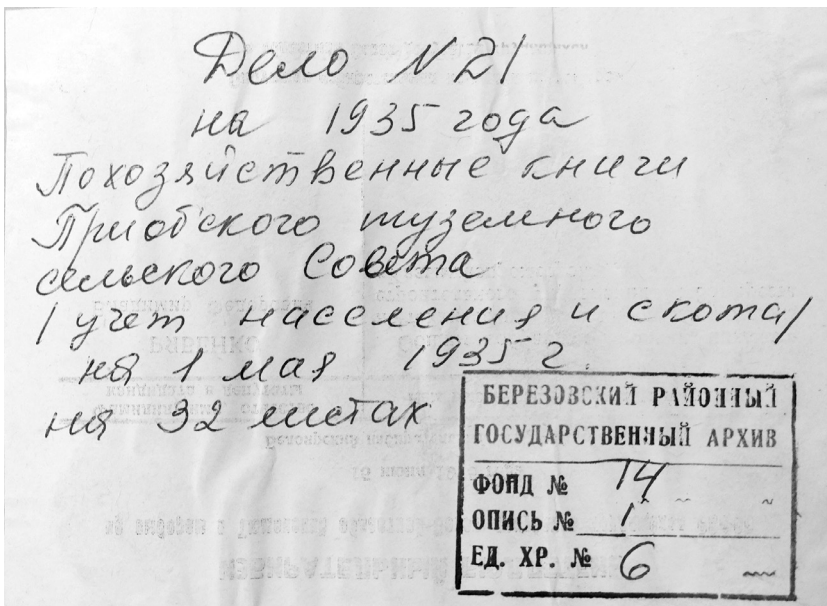 Дело №21
на 1935 года
Похозяйственные книги
Приобского туземного
сельского Совета
/учет населения и скота/
на 1 мая 1935 г.
на 32 листах
БЕРЕЗОВСКИЙ РАЙОННЫЙ
ГОСУДАРСТВЕННЫЙ АРХИВ
ФОНД № 14
ОПИСЬ № 1
ЕД. ХР. № 6